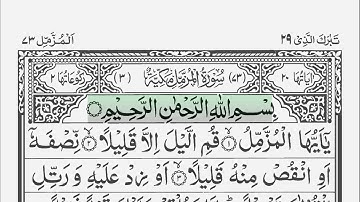 تَبٰرَكَ الَّذِیْ ۲۹
اَلْمُزَّمِّل ۷۳
اٰیَاتُهَا ۲۰
(۷۳) سُوْرَةُ الْمُزَّمِّلِ مَكِّیَّةٌ (۳)
رُكُوْعَاتُهَا ۲
بِسْمِ اللّٰهِ الرَّحْمٰنِ الرَّحِیْمِ
یٰۤاَیُّهَا الْمُزَّمِّلُ ۙ۱ قُمِ الَّیْلَ اِلَّا قَلِیْلًا ۙ۲ نِّصْفَهٗۤ
اَوِ انْقُصْ مِنْهُ قَلِیْلًا ۙ۳ اَوْ زِدْ عَلَیْهِ وَ رَتِّلِ